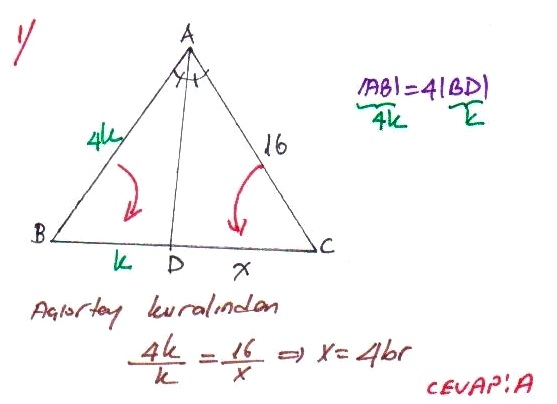 1/
A
|AB| = 4|BD|
4k k
4k 16
B k D x C
Açıortay kuralından
4k/k = 16/x ⇒ x = 4br
CEVAP: A